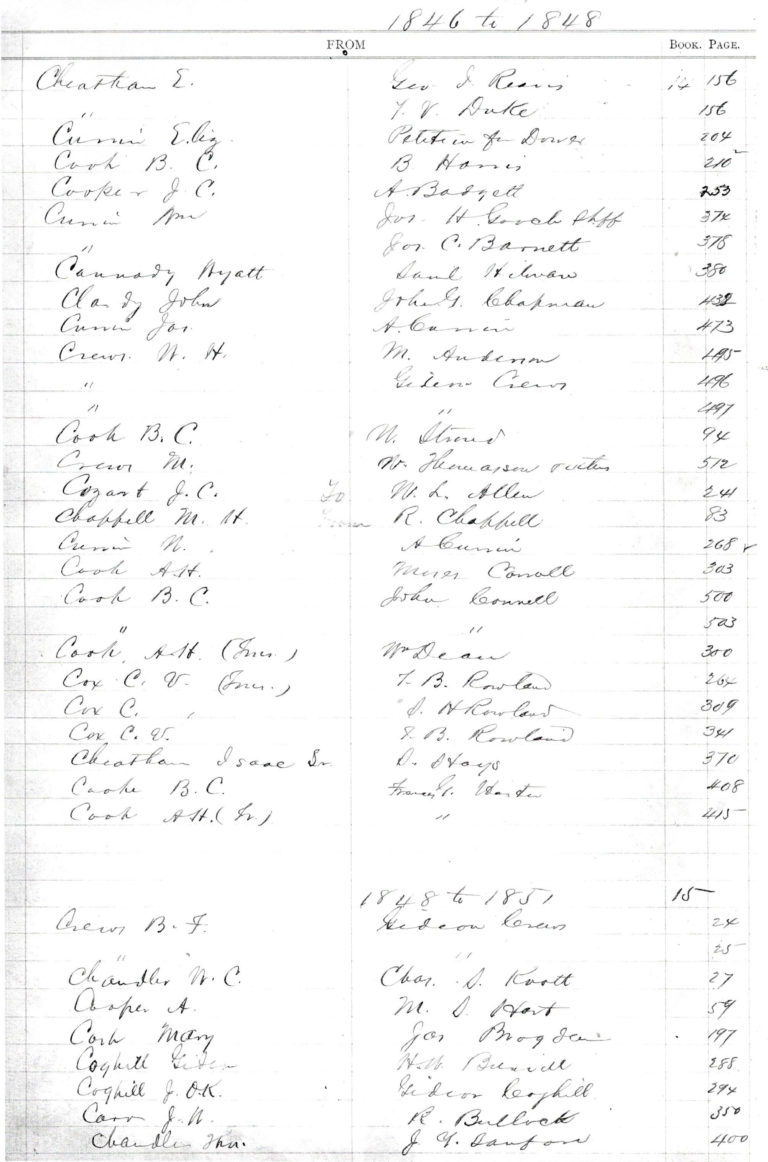 1846 to 1848
FROM BOOK. PAGE.
Cheatham E. Geo J Reavis 14 156
" T. V. Duke 156
Currin Eliz. Petition for Dower 204
Cook B. C. B Harris 210
Cooper J. C. A. Badgett 253
Currin Wm Jos. H. Gooch Shff 374
" Jos. C. Barnett 378
Cannady Wyatt Saml 380
Clardy John John G. Chapman 432
Currin Jas. A. Currin 473
Crews W. H. M. Anderson 495
" Gideon Crews 496
" " 497
Cook B. C. W. Stroud 94
Crews M. W. Thomasson 512
Cozart J. C. To W. L. Allen 241
Chappell M. H. From R. Chappell 83
Currin N. A Currin 268
Cook A.H. Moses Carroll 303
Cook B. C. John Connell 500
" " 503
Cook A.H. (Trus.) Wm Dean 300
Cox C. V. (Trus.) T. B. Rowland 264
Cox C. " S. H Rowland 309
Cox C. V. T. B. Rowland 341
Cheatham Isaac Sr. D. Hays 370
Cooke B. C. Frances G. 408
Cook A.H. (Tr.) " 415
1848 to 1851 15
Crews B. F. Gideon Crews 24
" " 25
Chandler W. C. Chas. S. Knott 27
Cooper A. M. D. Hart 59
Cash Mary Jas Brogden 197
Coghill Giden H.W. 288
Coghill J. O.K. Gideon Coghill 294
Carr J. W. R. Bullock 350
Chandler Thos. J. Y. Sanford 400